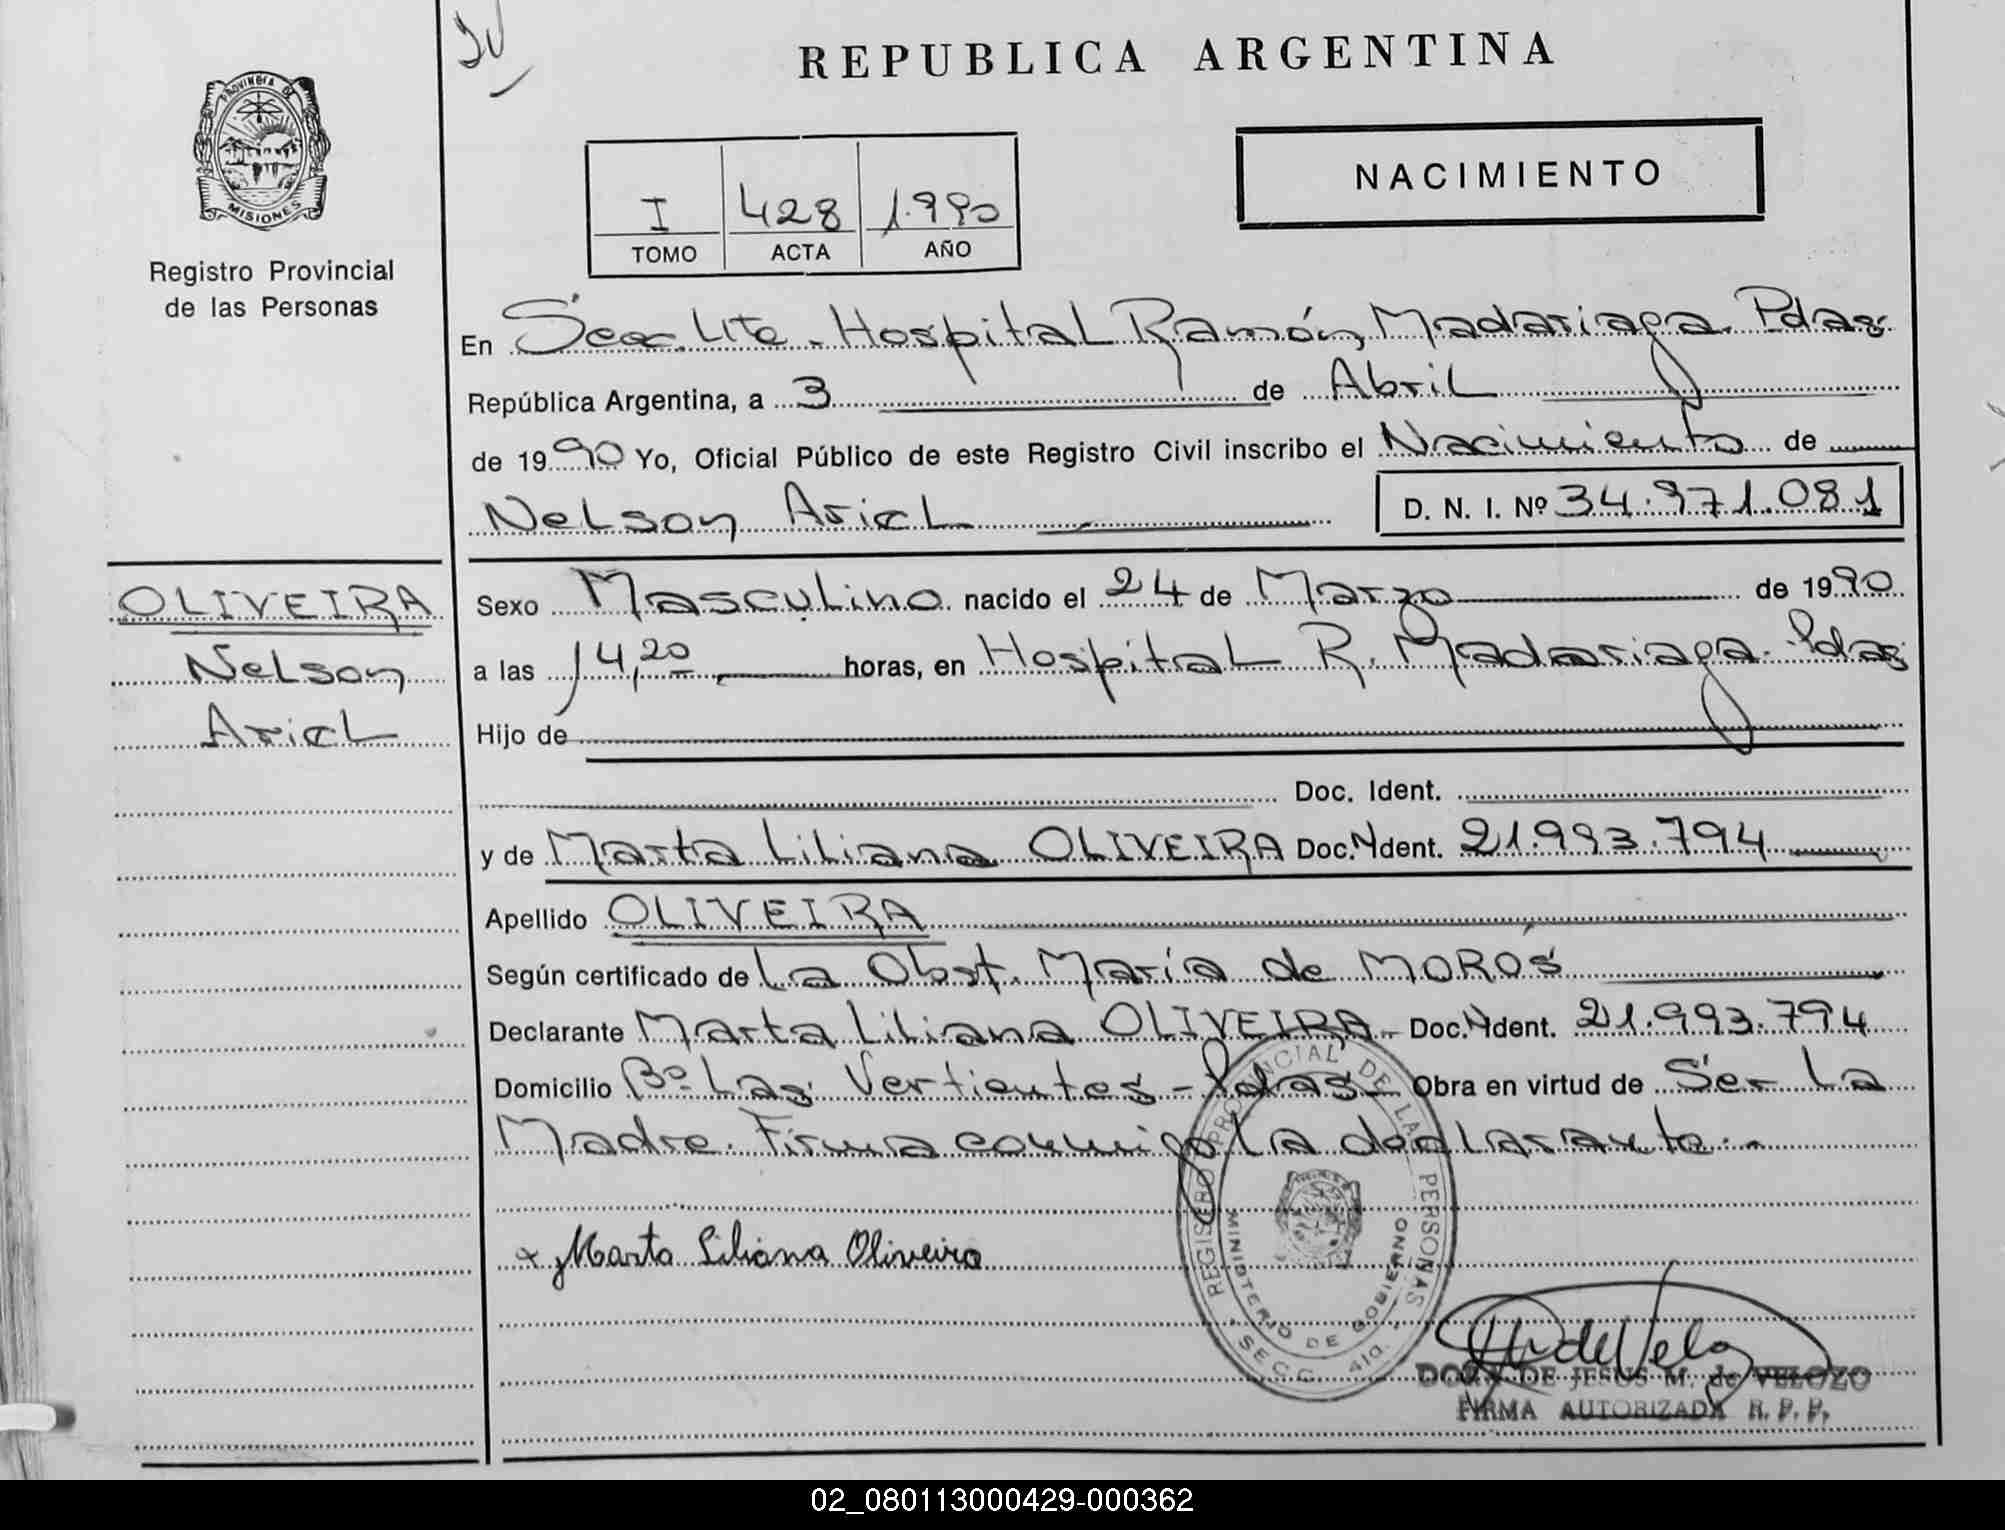 REPUBLICA ARGENTINA
PROVINCIA DE
MISIONES
Registro Provincial
de las Personas
NACIMIENTO
I 428 1.990
TOMO ACTA AÑO
En Secc. 4ta. Hospital Ramón Madariaga. Pdas.
República Argentina, a 3 de Abril
de 1990 Yo, Oficial Público de este Registro Civil inscribo el Nacimiento de
Nelson Ariel D. N. I. Nº 34.971.081
OLIVEIRA
Nelson
Ariel
Sexo Masculino nacido el 24 de Marzo de 1990
a las 14,20 horas, en Hospital R. Madariaga. Pdas
Hijo de
Doc. Ident.
y de Marta Liliana OLIVEIRA Doc. Ident. 21.993.794
Apellido OLIVEIRA
Según certificado de La Obst. María de MOROS
Declarante Marta Liliana OLIVEIRA- Doc. Ident. 21.993.794
Domicilio Bº Las Vertientes - Pdas- Obra en virtud de Ser La
Madre. Firma conmigo la declarante.-
x Marta Liliana Oliveira
REGISTRO PROVINCIAL DE LAS PERSONAS
MINISTERIO DE GOBIERNO
SECC. 4ta.
DE JESUS M. de VELOZO
FIRMA AUTORIZADA R. P. P.
02_080113000429-000362